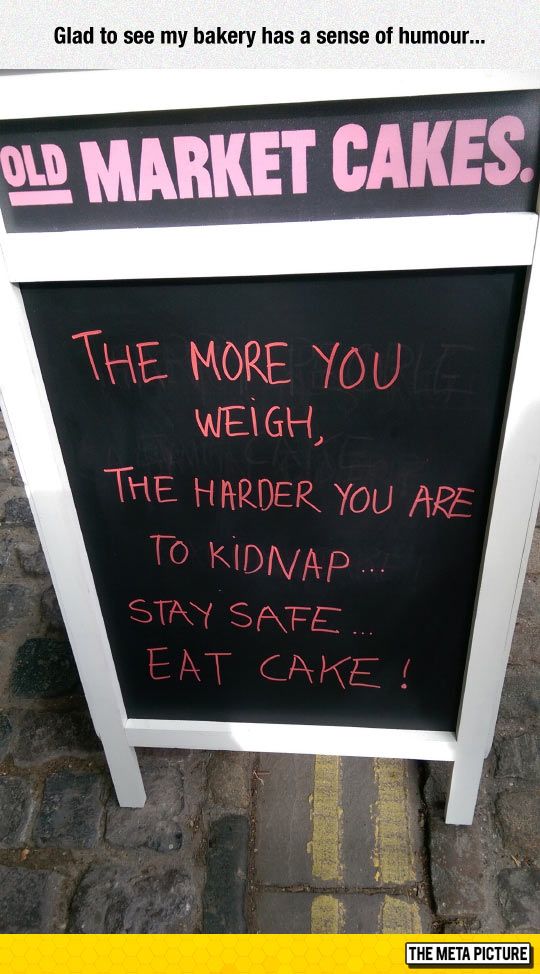 Glad to see my bakery has a sense of humour...
OLD MARKET CAKES.
THE MORE YOU
WEIGH,
THE HARDER YOU ARE
TO KIDNAP...
STAY SAFE...
EAT CAKE!
THE META PICTURE